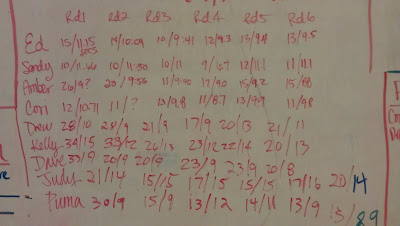 Rd1 rd2 Rd3 Rd4 Rd5 Rd6
Ed 15/11:15 14/10:09 10/9:41 12/9:3 13/9:4 13/9.5
Sandy 10/11:00 10/11:30 10/11 9/ 12/11.1 11/11.1
Amber 20/? 20/9:56 11/9:90 17/90 15/9.2 15/
Cori 12/10:71 11/? 13/9.8 11/8.7 13/9.9 11/9.8
Drew 28/10 20/9 21/9 17/9 20/13 21/11
Kelly 34/15 33/12 26/13 23/12 22/14 20/13
Dave 33/9 20/9 20/9 23/9 23/9 20/8
Judy 21/14 15/15 17/15 15/15 17/16 20/14
Puma 30/9 15/9 13/12 14/11 13/9 13/89